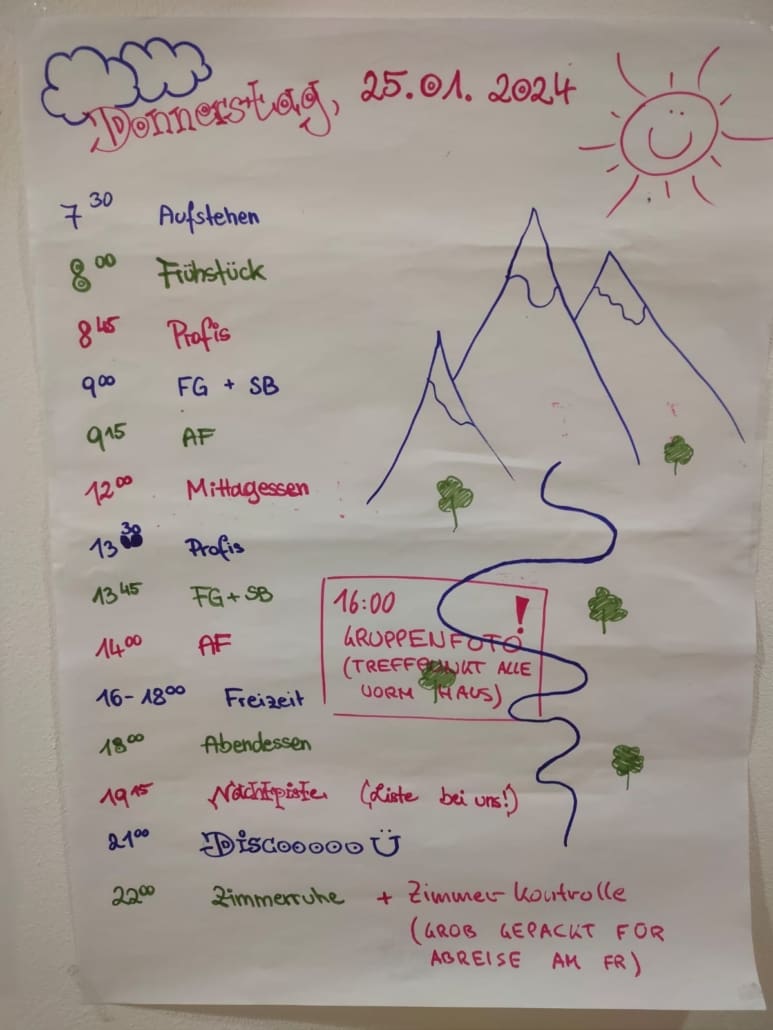 Donnerstag, 25.01.2024
7 30 Aufstehen
8 00 Frühstück
8 45 Profis
9 00 FG + SB
9 15 AF
12 00 Mittagessen
13 30 Profis
13 45 FG + SB
14 00 AF
16:00 !
GRUPPENFOTO
(TREFFPUNKT ALLE
VORM HAUS)
16 - 18 00 Freizeit
18 00 Abendessen
19 15 Nachtpiste (Liste bei uns!)
21 00 Discooooo Ü
22 00 Zimmerruhe + Zimmer-Kontrolle
(GROB GEPACKT FÜR
ABREISE AM FR)